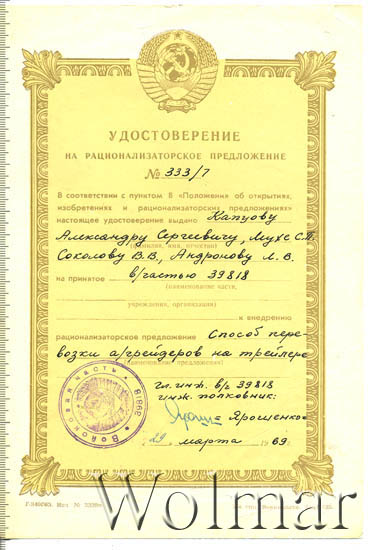 УДОСТОВЕРЕНИЕ
НА РАЦИОНАЛИЗАТОРСКОЕ ПРЕДЛОЖЕНИЕ
№ 333/7
В соответствии с пунктом 8 «Положения об открытиях,
изобретениях и рационализаторских предложениях»
настоящее удостоверение выдано Капцову
Александру Сергеевичу, Мухе С.Т.
(фамилия, имя, отчество)
Соколову В.В., Андронову Л.В.
на принятое в/частью 39818
(наименование части,
учреждения, организации)
к внедрению
рационализаторское предложение Способ пере-
возки а/грейдеров на трейлере
Гл. инж. в/ч 39818
инж. полковник:
Ярошенко
29 марта 1969 г.
Войсковая часть 39818
Wolmar